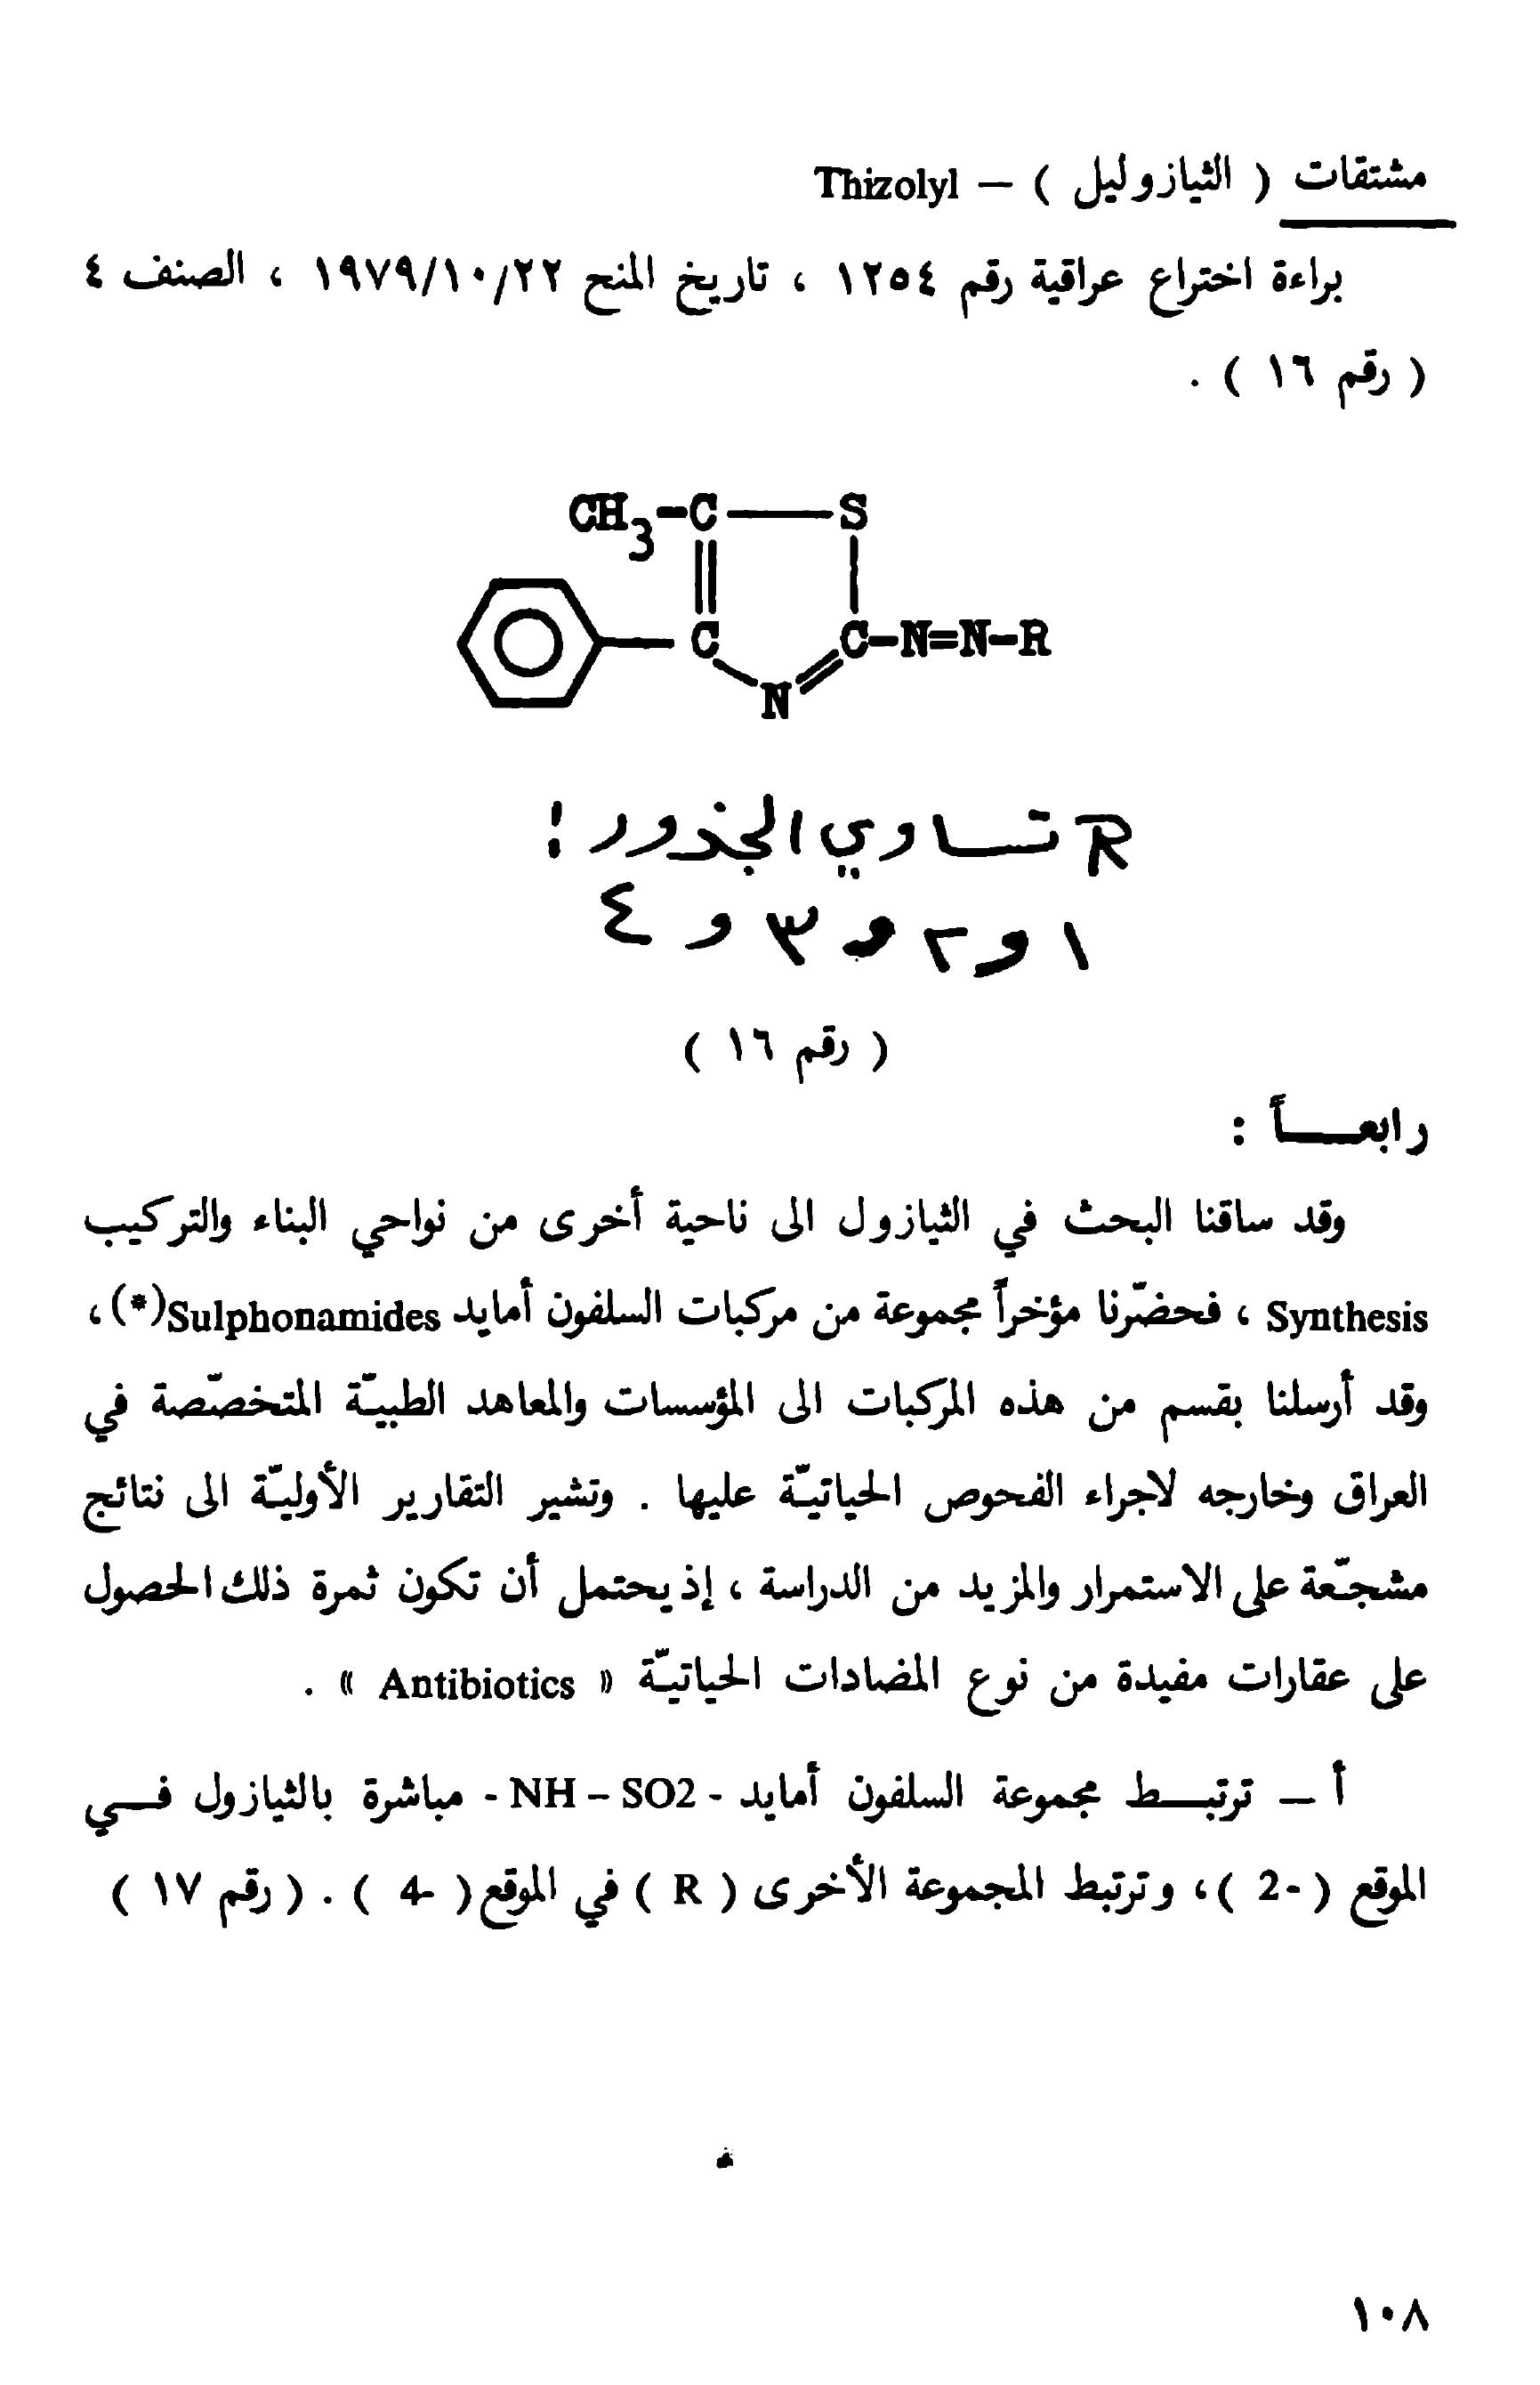 مشتقات ( الثيازوليل ) – Thizolyl
براءة اختراع عراقية رقم ١٢٥٤ ، تاريخ المنح ١٩٧٩/١٠/٢٢ ، الصنف ٤
( رقم ١٦ ) .
CH3-C—S
C C-N=N-R
N
R تساوي الجذور :
١ و ٢ و ٣ و ٤
( رقم ١٦ )
رابعـــاً :
وقد ساقنا البحث في الثيازول الى ناحية أخرى من نواحي البناء والتركيب
Synthesis ، فحضّرنا مؤخراً مجموعة من مركبات السلفون أمايد Sulphonamides(*) ،
وقد أرسلنا بقسم من هذه المركبات الى المؤسسات والمعاهد الطبيّة المتخصّصة في
العراق وخارجه لاجراء الفحوص الحياتيّة عليها . وتشير التقارير الأوليّة الى نتائج
مشجّعة على الاستمرار والمزيد من الدراسة ، إذ يحتمل أن تكون ثمرة ذلك الحصول
على عقارات مفيدة من نوع المضادات الحياتيّة « Antibiotics » .
أ – ترتبـــط مجموعة السلفون أمايد - NH – SO2 - مباشرة بالثيازول فـــي
الموقع ( -2 )، وترتبط المجموعة الأخرى ( R ) في الموقع( -4 ) . ( رقم ١٧ )
١٠٨